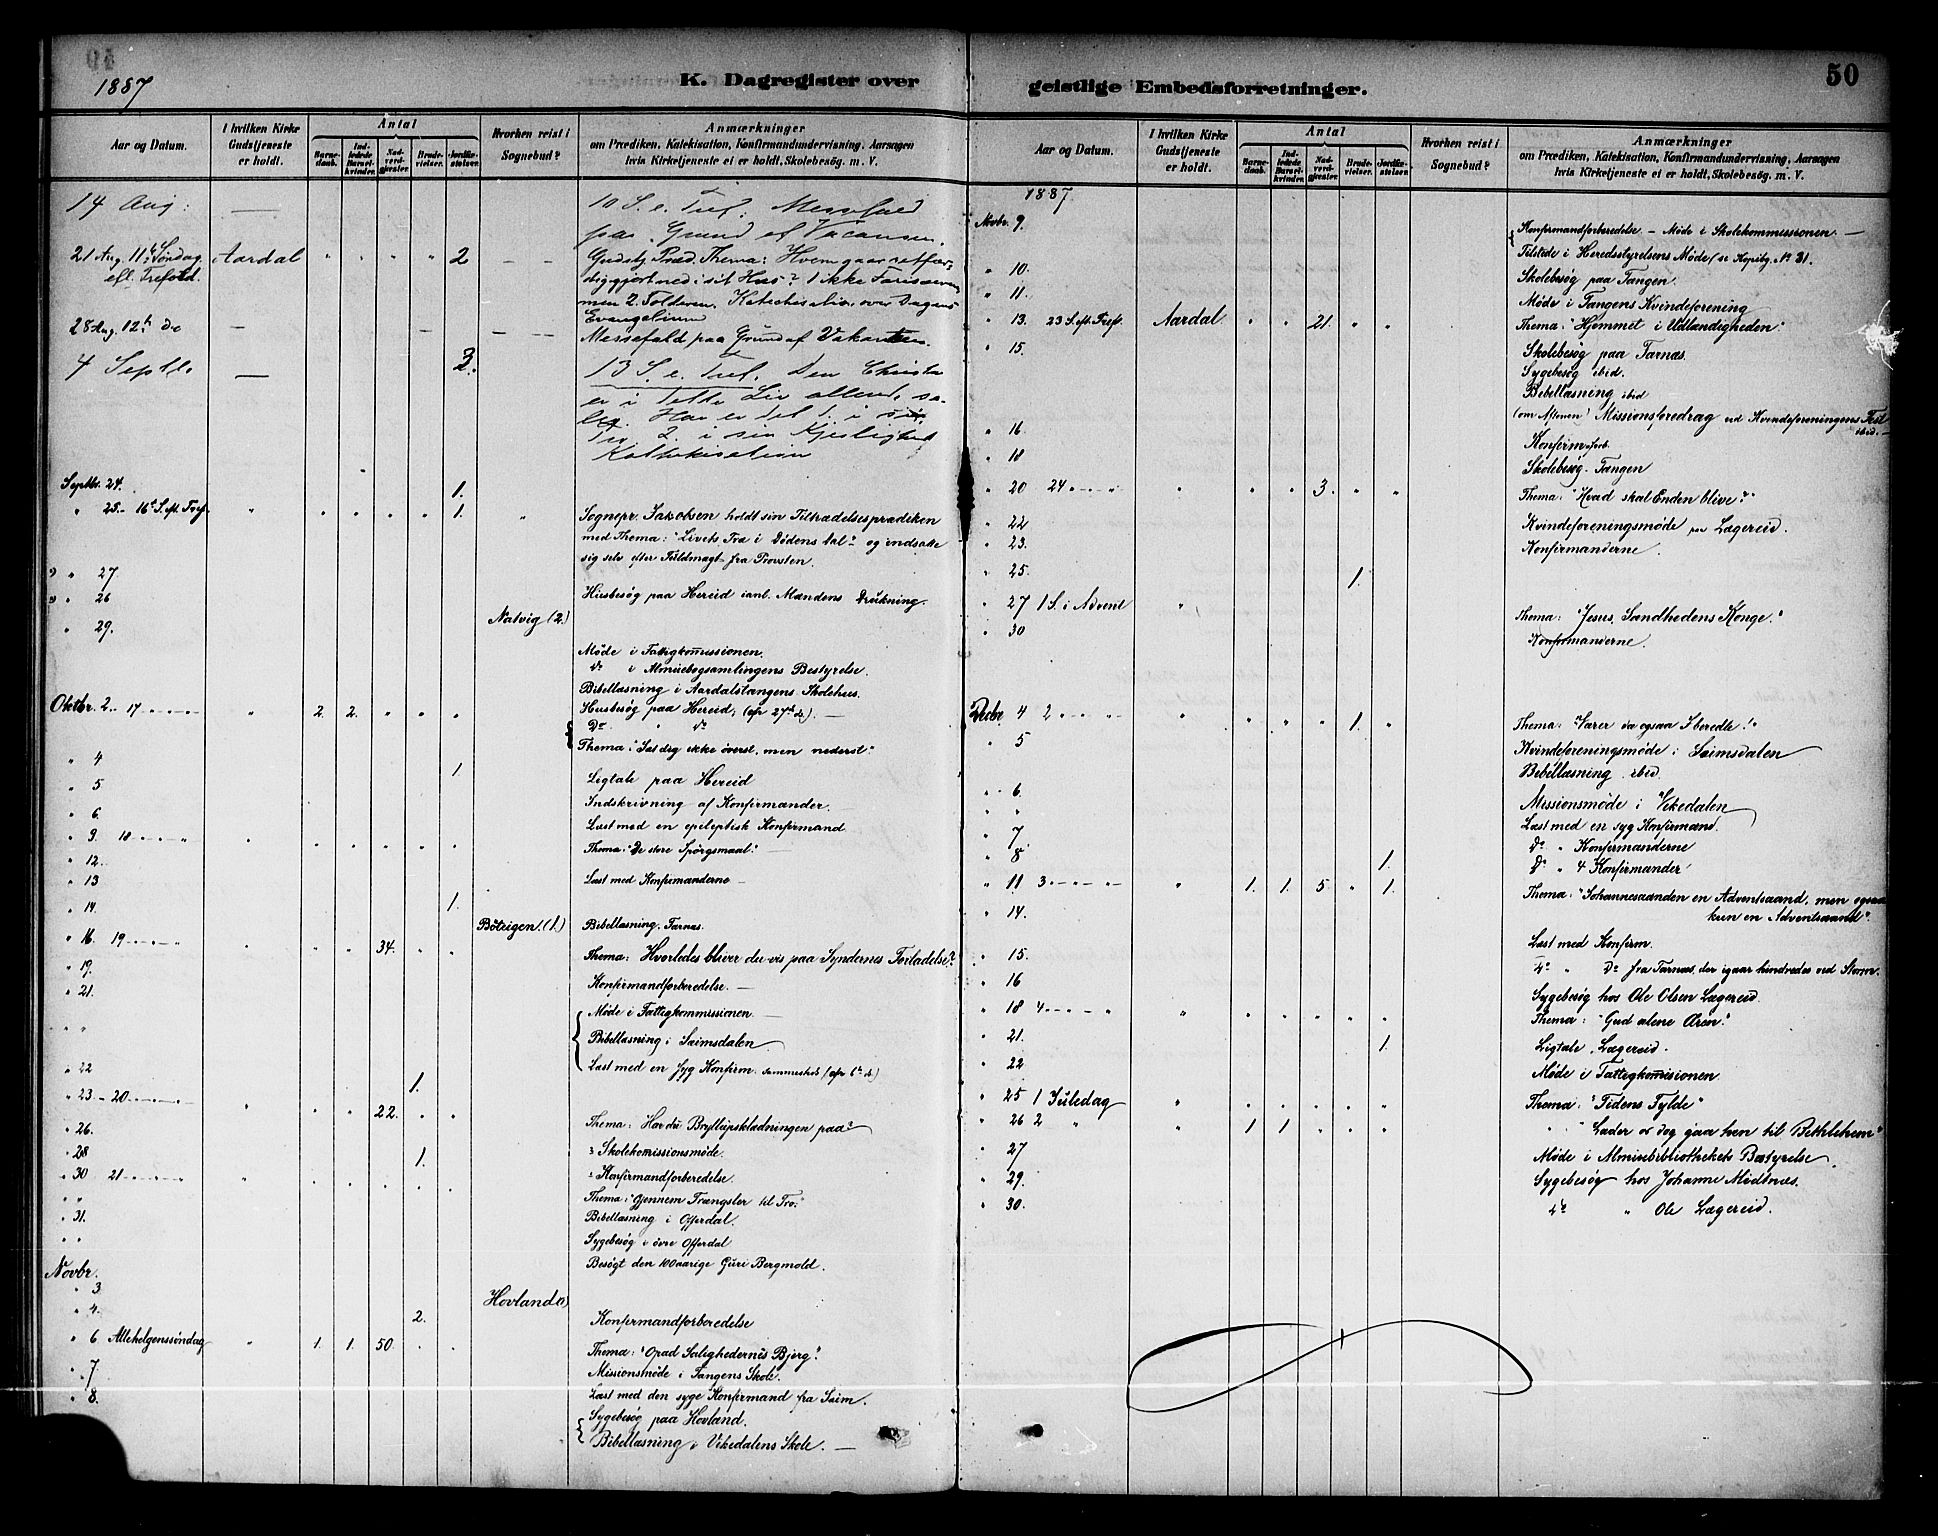 1887
K. Dagregister over
Aar og Datum.
I hvilken Kirke Gudstjeneste er holdt.
Antal
Barnedaab.
Indledede Barselkvinder.
Nadverdgjester.
Brudevielser.
Jordfæstelser.
Hvorhen reist i Sognebud?
Anmærkninger
om Prædiken, Katekisation, Konfirmandundervisning, Aarsagen
hvis Kirketjeneste ei er holdt, Skolebesøg. m. V.
14 Aug: — 10 S. e. Tref. Messefald
paa Grund af Vacansen.
21 Aug. 11te Søndag Aardal " " " " 2 — — Gudstj. Præd. Thema: Hvem gaar retfær-
eft. Trefold. diggjort ned i sit Hus? 1 ikke Farisæeren
men 2. Tolderen. Katechisation over Dagens
Evangelium
28 Aug. 12te Do — — — — Messefald paa Grund af Vakantsen.
4 Septb. — 3 2. 13 S. e. Tref. Den Christne
er i dette Liv allerede sa-
lig. Han er det 1. i sin
Tro 2. i sin Kjerlighed
Katekisation
Septbr. 24. 1.
" 25 - 16de S. eft. Tref. " " " " " 1. " Sognepr. Jakobsen holdt sin Tiltrædelsesprædiken
med Thema: "Livets Træ i Dødens Dal" og indsatte
sig selv efter Fuldmagt fra Provsten.
" 27
" 26 Husbesøg paa Hereid i anl. Mandens Drukning.
" 29. Natvig (2.)
Møde i Fattigkommissionen.
do i Almuebogsamlingens Bestyrelse.
Bibellæsning i Aardalstangens Skolehus.
Oktbr. 2. 17 — " 2. 2. " " " Husbesøg paa Hereid, (cfr 27de ds). —
Do " do
Thema: "Sæt dig ikke øverst, men nederst."
" 4 1. Ligtale paa Hereid
" 5 Indskrivning af Konfirmander. —
" 6. Læst med en epileptisk Konfirmand
" 9. 18 — " " " " " " " Thema: "De store Spørgsmaal." —
" 12.
" 13 Læst med Konfirmanderne —
" 14. 1.
Bøteigen. (1.) Bibellæsning. Farnæs.
" 16. 19 — " " " 34. " " Thema: Hvorledes bliver du vis paa Syndernes Forladelse?
" 19. Konfirmandforberedelse. —
" 21. Møde i Fattigkommissionen —
" " Bibellæsning i Seimsdalen
Læst med en syg Konfirm. sammesteds (cfr 6te ds)
" 22 1.
" 23 - 20 — " " " 22. " " Thema: Har du Bryllupsklædningen paa?
" 26. Skolekomissionsmøde.
" 28 1. Konfirmandforberedelse.
" 30 21 — " " " " " " Thema: "Gjennem Trængsler til Tro."
" " Bibellæsning i Offerdal.
" 31. Sygebesøg i øvre Offerdal
" " Besøgt den 100aarige Guri Bergmold.
Novbr.
" 3 Hovland (1)
" 4. 2. Konfirmandforberedelse
" 6 Allehelgenssøndag " 1. 1. 50. " " Thema: "Opad Salighedernes Bjerg."
" 7 Missionsmøde i Tangens Skole.
" 8. Læst med den syge Konfirmand fra Seim.
Sygebesøg paa Hovland.
Bibellæsning i Vikedalens Skole. —
50
geistlige Embedsforretninger.
Aar og Datum.
I hvilken Kirke Gudstjeneste er holdt.
Antal
Barnedaab.
Indledede Barselkvinder.
Nadverdgjester.
Brudevielser.
Jordfæstelser.
Hvorhen reist i Sognebud?
Anmærkninger
om Prædiken, Katekisation, Konfirmandundervisning, Aarsagen
hvis Kirketjeneste ei er holdt, Skolebesøg. m. V.
1887
Novbr. 9. Konfirmandforberedelse. — Møde i Skolekommissionen. —
Tilstede i Heredsstyrelsens Møde (se Kopibg. No 31.
" 10. Skolebesøg paa Tangen.
" 11. Møde i Tangens Kvindeforening
" 13. 23 S. eft. Tref. Aardal " " 21. " " Thema: "Hjemmet i Udlændigheden."
" 15. Skolebesøg paa Farnæs.
Sygebesøg ibid.
Bibellæsning ibid
(om Aftenen) Missionsforedrag ved Kvindeforeningens Fest
ibid. —
" 16. Konfirm.forb.
" 18 Skolebesøg. Tangen
" 20 24 " " " " " 3. " " Thema: "Hvad skal Enden blive?"
" 22 Kvindeforeningsmøde paa Lægereid.
" 23. Konfirmanderne.
" 25. 1.
" 27 1 S. i Advent " Thema: "Jesus, Sandhedens Konge."
" 30 Konfirmanderne
Decbr. 4 2 " " " " " " 1. " Thema: "Værer da ogsaa I beredte!"
" 5 Kvindeforeningsmøde i Seimsdalen
Bibellæsning ibid.
" 6. Missionsmøde i Vikedalen
" Læst med en syg Konfirmand.
" 7 Do " Konfirmanderne
" 8 1. Do " 4 Konfirmander
" 11 3 " " " " 1. 1. 5 " 1. Thema: "Johannesaanden en Adventsaand, men ogsaa
kun en Adventsaand."
" 14. Læst med Konfirm.
" 15. Do " Do fra Farnæs, der igaar hindredes ved Storm.
" 16 Sygebesøg hos Ole Olsen Lægereid.
" 18 4 " " " " " " " " " Thema: "Gud alene Æren."
" 21. 1. Ligtale, Lægereid.
" 22 Møde i Fattigkomisionen
" 25 1 Juledag " " " " " " Thema: "Tidens Fylde"
" 26 2 " " 1 1 " " " " "Lader os dog gaa hen til Bethlehem"
" 27 Møde i Almuebibliothekets Bestyrelse.
" 29. Sygebesøg hos Johanne Midtnæs.
" 30. do " Ole Lægereid.